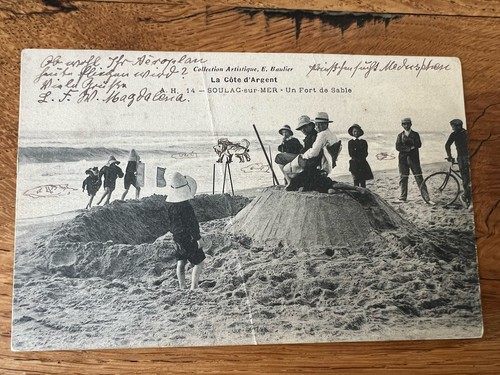 Ob wohl Ihr Aëroplan
heute fliegen wird?
Viele Grüsse
L. F. W. Magdalena.
Collection Artistique, E. Baulier
La Côte d'Argent
A. H. 14 - SOULAC-sur-MER - Un Fort de Sable